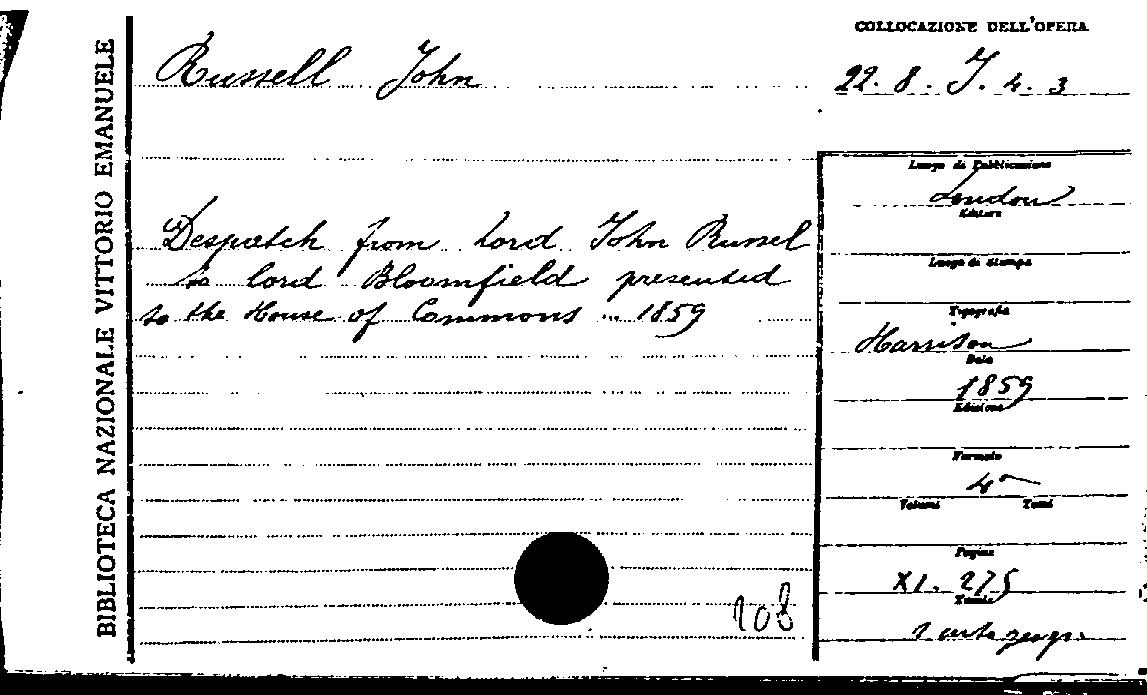 BIBLIOTECA NAZIONALE VITTORIO EMANUELE
Russell John
COLLOCAZIONE DELL'OPERA
22. 8. J. 4. 3
Despatch from Lord John Russel
to lord Bloomfield presented
to the House of Commons ... 1859
108
Luogo di Pubblicazione
London
Editore
Luogo di Stampa
Tipografia
Harrison
Data
1859
Edizione
Formato
4°
Volumi Tomi
Pagine
XI. 275
Tavole
1 carta geogr.